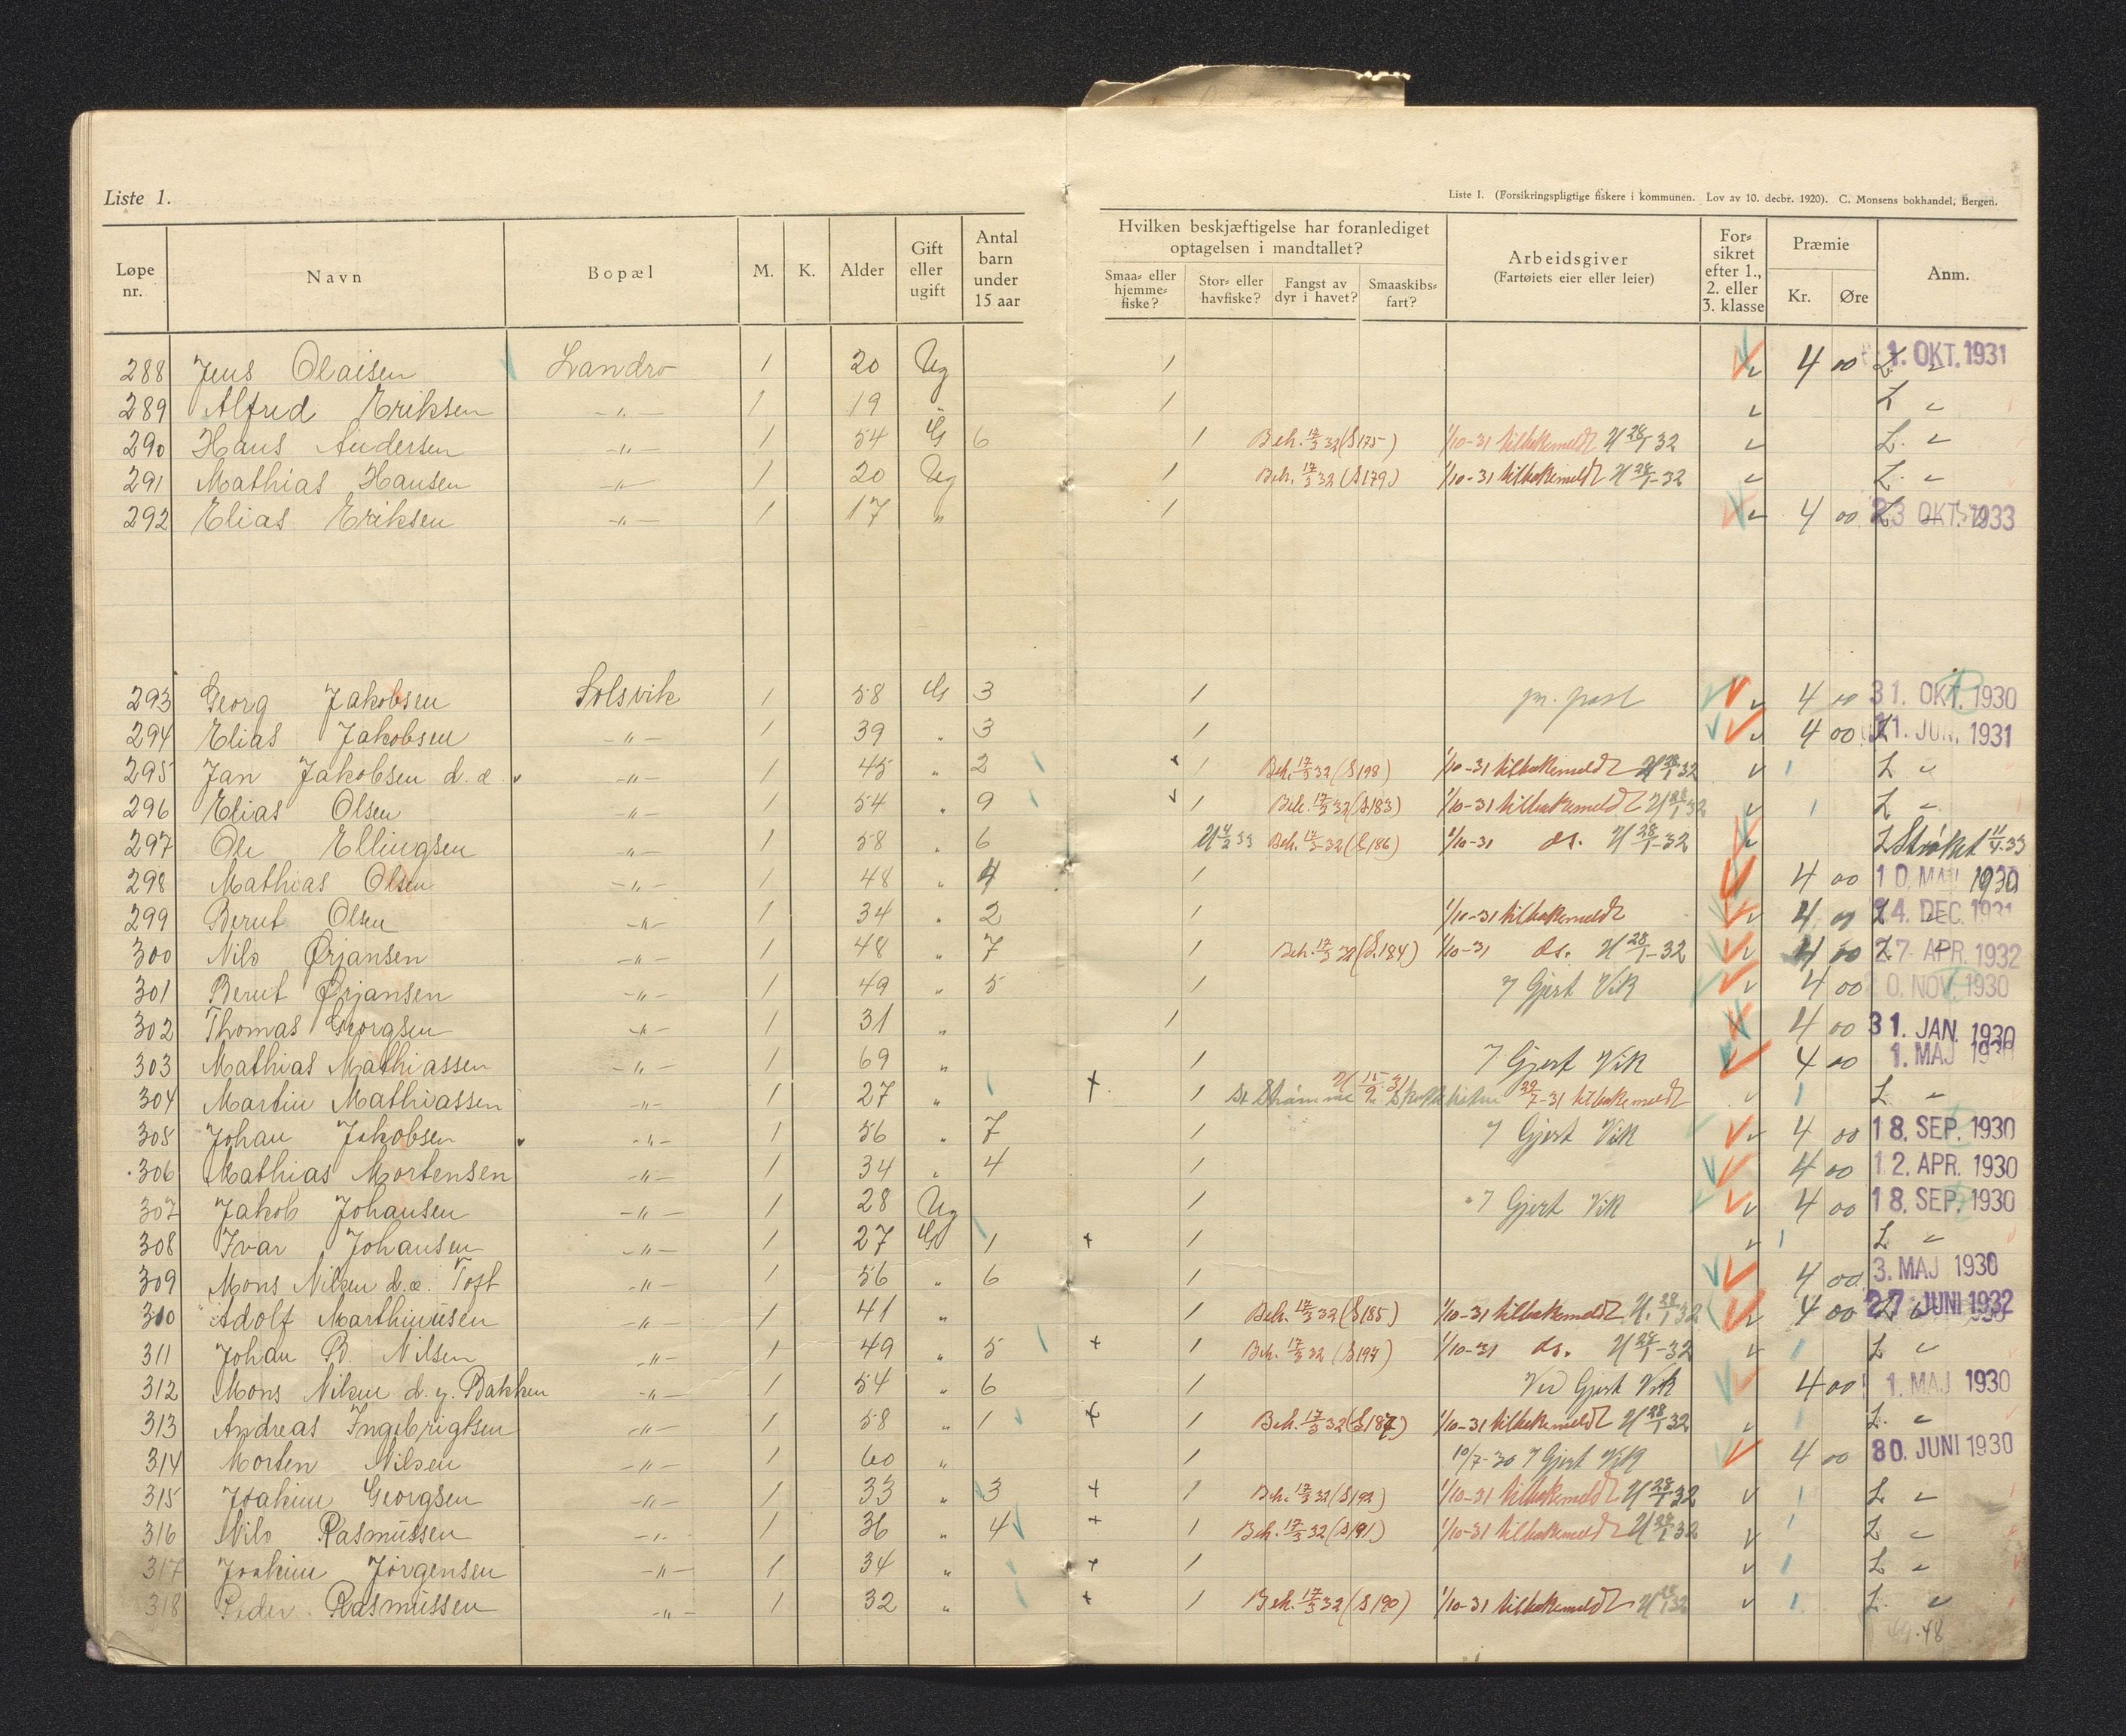 Liste 1.
Liste 1. (Forsikringspligtige fiskere i kommunen. Lov av 10. decbr. 1920). C. Monsens bokhandel, Bergen.
Løpe nr. Navn Bopæl M. K. Alder Gift eller ugift Antal barn under 15 aar
Hvilken beskjæftigelse har foranlediget optagelsen i mandtallet?
Smaa- eller hjemme-fiske? Stor- eller havfiske? Fangst av dyr i havet? Smaaskibs-fart?
Arbeidsgiver (Fartøiets eier eller leier) For-sikret efter 1., 2. eller 3. klasse Præmie Kr. Øre Anm.
288 Jens Olaisen Landro 1 20 Ug 1 4 00 1. OKT. 1931
289 Alfred Eriksen -"- 1 19 " 1 L
290 Hans Andersen -"- 1 54 G 6 1 Beh. 17/3 32 (S 175) 1/10-31 tilbakemeldt 28/1-32 L.
291 Mathias Hansen -"- 1 20 Ug 1 Beh. 17/3 32 (S 179) 1/10-31 tilbakemeldt 28/1-32 L.
292 Elias Eriksen -"- 1 17 " 1 4 00 23 OKT. 1933
293 Georg Jakobsen Solsvik 1 58 G 3 1 pr. post 4 00 31. OKT. 1930
294 Elias Jakobsen -"- 1 39 " 3 1 4 00 11. JUN. 1931
295 Jan Jakobsen d.æ. -"- 1 45 " 2 1 Beh. 17/3 32 (S 198) 1/10-31 tilbakemeldt 28/1-32 1 L
296 Elias Olsen -"- 1 54 " 9 1 Beh. 17/3 32 (S 183) 1/10-31 tilbakemeldt 28/1-32 1 L
297 Ole Ellingsen -"- 1 58 " 6 Beh. 17/3 32 (S 186) 1/10-31 ds. 28/1-32 L Strøket 11/4-33
298 Mathias Olsen -"- 1 48 " 4 1 4 00 10. MAI 1930
299 Bernt Olsen -"- 1 34 " 2 1 1/10-31 tilbakemeldt 4 00 24. DEC. 1931
300 Nils Ørjansen -"- 1 48 " 7 1 Beh. 17/3 32 (S. 184) 1/10-31 ds. 28/1-32 4 00 27. APR. 1932
301 Bernt Ørjansen -"- 1 49 " 5 1 Gjert Vik 4 00 0. NOV. 1930
302 Thomas Georgsen -"- 1 31 " 1 4 00 31. JAN. 1930
303 Mathias Mathiassen -"- 1 69 " 1 Gjert Vik 4 00 1. MAJ 1930
304 Martin Mathiassen -"- 1 27 " 1 + 1 15/9 31 -31 tilbakemeldt 1 L
305 Johan Jakobsen -"- 1 56 " 7 1 Gjert Vik 4 00 18. SEP. 1930
306 Mathias Mortensen -"- 1 34 " 4 1 4 00 12. APR. 1930
307 Jakob Johansen -"- 1 28 Ug 1 Gjert Vik 4 00 18. SEP. 1930
308 Ivar Johansen -"- 1 27 G 1 + 1 1 L
309 Mons Nilsen d.æ. Toft -"- 1 56 " 6 1 4 00 3. MAJ 1930
310 Adolf Marthinusen -"- 1 41 " 1 Beh. 17/3 32 (S 185) 1/10-31 tilbakemeldt 28/1 32 4 00 27. JUNI 1932
311 Johan B. Nilsen -"- 1 49 " 5 + 1 Beh. 17/3 32 (S 194) 1/10-31 ds. 28/1-32 1 L
312 Mons Nilsen d.y. Bakken -"- 1 54 " 6 1 Ved Gjert Vik 4 00 1. MAJ 1930
313 Andreas Ingebrigtsen -"- 1 58 " 1 + 1 Beh. 17/3 32 (S 187) 1/10-31 tilbakemeldt 28/1 32 1 L.
314 Morten Nilsen -"- 1 60 " 1 10/7-30 Gjert Vik 4 00 30. JUNI 1930
315 Joakim Georgsen -"- 1 33 " 3 + 1 Beh. 17/3 32 (S 192) 1/10-31 tilbakemeldt 28/1-32 1 L
316 Nils Rasmussen -"- 1 36 " 4 + 1 Beh. 17/3 32 (S 191) 1/10-31 tilbakemeldt 28/1 32 1 L
317 Joakim Jørgensen -"- 1 34 " + 1 1 L
318 Peder Rasmussen -"- 1 32 " + 1 Beh. 17/3 32 (S 190) 1/10-31 tilbakemeldt 28/1 32 1 L.